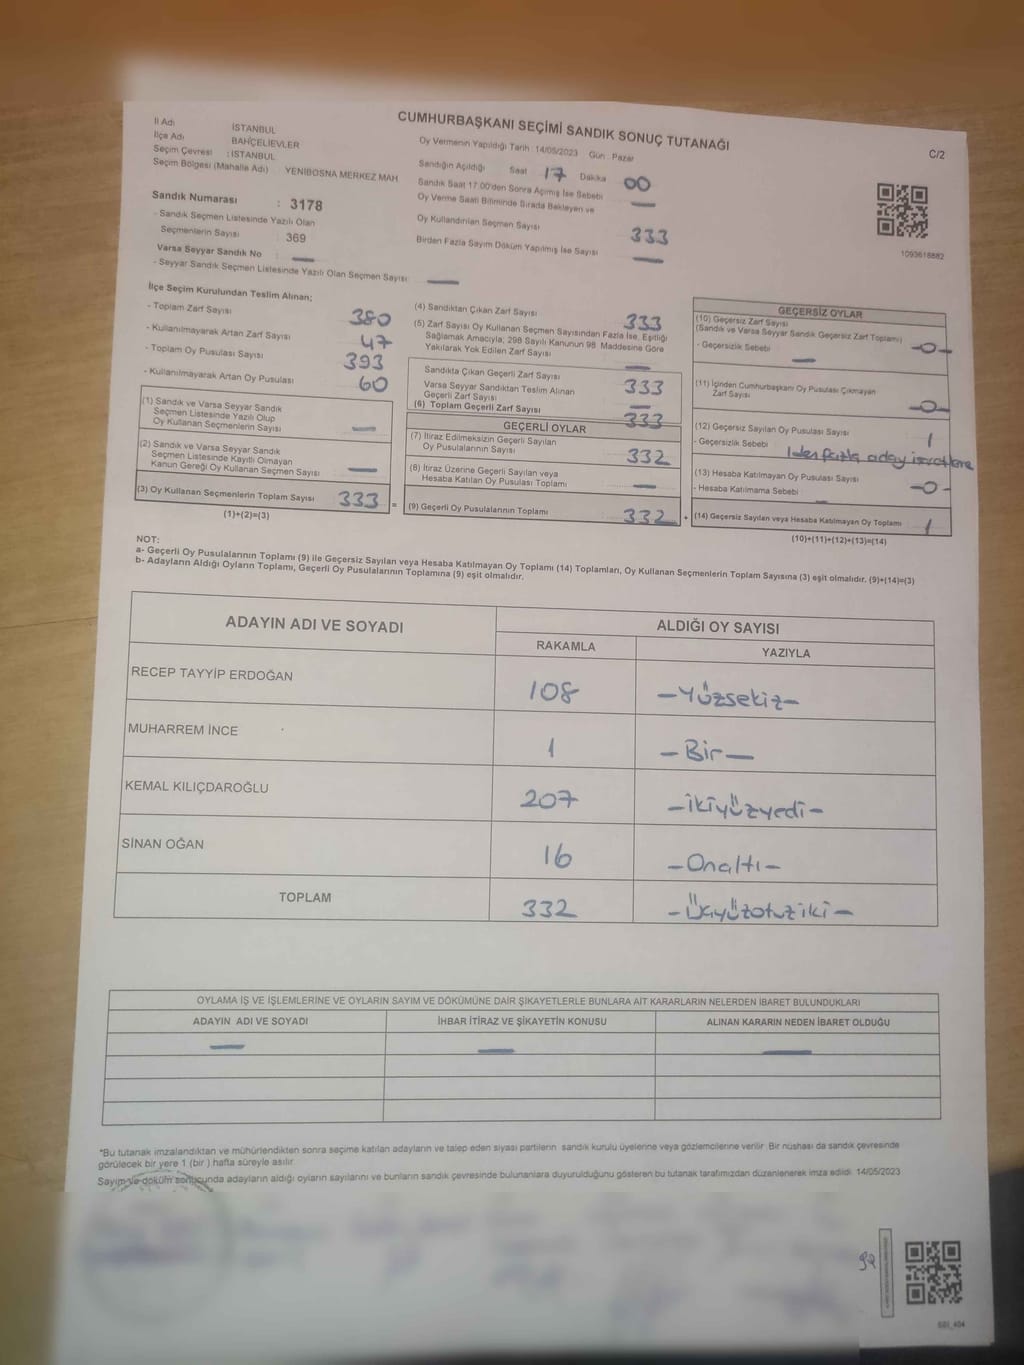 CUMHURBAŞKANI SEÇİMİ SANDIK SONUÇ TUTANAĞI
C/2
İl Adı İSTANBUL
İlçe Adı BAHÇELİEVLER
Seçim Çevresi : İSTANBUL
Seçim Bölgesi (Mahalle Adı) YENİBOSNA MERKEZ MAH
Oy Vermenin Yapıldığı Tarih : 14/05/2023 Gün : Pazar
Sandığın Açıldığı Saat 17 Dakika 00
Sandık Saat 17:00'den Sonra Açılmış İse Sebebi —
Oy Verme Saati Bitiminde Sırada Bekleyen ve
Oy Kullandırılan Seçmen Sayısı 333
Birden Fazla Sayım Döküm Yapılmış İse Sayısı —
1093618882
Sandık Numarası : 3178
- Sandık Seçmen Listesinde Yazılı Olan
Seçmenlerin Sayısı : 369
Varsa Seyyar Sandık No : —
- Seyyar Sandık Seçmen Listesinde Yazılı Olan Seçmen Sayısı : —
İlçe Seçim Kurulundan Teslim Alınan;
- Toplam Zarf Sayısı 380
- Kullanılmayarak Artan Zarf Sayısı 47
- Toplam Oy Pusulası Sayısı 393
- Kullanılmayarak Artan Oy Pusulası 60
(1) Sandık ve Varsa Seyyar Sandık
Seçmen Listesinde Yazılı Olup
Oy Kullanan Seçmenlerin Sayısı —
(2) Sandık ve Varsa Seyyar Sandık
Seçmen Listesinde Kayıtlı Olmayan
Kanun Gereği Oy Kullanan Seçmen Sayısı —
(3) Oy Kullanan Seçmenlerin Toplam Sayısı 333 =
(1)+(2)=(3)
(4) Sandıktan Çıkan Zarf Sayısı 333
(5) Zarf Sayısı Oy Kullanan Seçmen Sayısından Fazla İse, Eşitliği
Sağlamak Amacıyla, 298 Sayılı Kanunun 98. Maddesine Göre
Yakılarak Yok Edilen Zarf Sayısı —
Sandıkta Çıkan Geçerli Zarf Sayısı 333
Varsa Seyyar Sandıktan Teslim Alınan
Geçerli Zarf Sayısı —
(6) Toplam Geçerli Zarf Sayısı 333
GEÇERLİ OYLAR
(7) İtiraz Edilmeksizin Geçerli Sayılan
Oy Pusulalarının Sayısı 332
(8) İtiraz Üzerine Geçerli Sayılan veya
Hesaba Katılan Oy Pusulası Toplamı —
(9) Geçerli Oy Pusulalarının Toplamı 332 +
GEÇERSİZ OYLAR
(10) Geçersiz Zarf Sayısı
(Sandık ve Varsa Seyyar Sandık Geçersiz Zarf Toplamı) -0-
- Geçersizlik Sebebi : —
(11) İçinden Cumhurbaşkanı Oy Pusulası Çıkmayan
Zarf Sayısı -0-
(12) Geçersiz Sayılan Oy Pusulası Sayısı 1
- Geçersizlik Sebebi : 1'den fazla aday
(13) Hesaba Katılmayan Oy Pusulası Sayısı -0-
- Hesaba Katılmama Sebebi : —
(14) Geçersiz Sayılan veya Hesaba Katılmayan Oy Toplamı 1
(10)+(11)+(12)+(13)=(14)
NOT:
a- Geçerli Oy Pusulalarının Toplamı (9) ile Geçersiz Sayılan veya Hesaba Katılmayan Oy Toplamı (14) Toplamları, Oy Kullanan Seçmenlerin Toplam Sayısına (3) eşit olmalıdır. (9)+(14)=(3)
b- Adayların Aldığı Oyların Toplamı, Geçerli Oy Pusulalarının Toplamına (9) eşit olmalıdır.
ADAYIN ADI VE SOYADI ALDIĞI OY SAYISI
RAKAMLA YAZIYLA
RECEP TAYYİP ERDOĞAN 108 -Yüzsekiz-
MUHARREM İNCE 1 -Bir-
KEMAL KILIÇDAROĞLU 207 -ikiyüzyedi-
SİNAN OĞAN 16 -Onaltı-
TOPLAM 332 -Üçyüzotuziki-
OYLAMA İŞ VE İŞLEMLERİNE VE OYLARIN SAYIM VE DÖKÜMÜNE DAİR ŞİKAYETLERLE BUNLARA AİT KARARLARIN NELERDEN İBARET BULUNDUKLARI
ADAYIN ADI VE SOYADI İHBAR İTİRAZ VE ŞİKAYETİN KONUSU ALINAN KARARIN NEDEN İBARET OLDUĞU
— — —
*Bu tutanak imzalandıktan ve mühürlendikten sonra seçime katılan adayların ve talep eden siyasi partilerin sandık kurulu üyelerine veya gözlemcilerine verilir. Bir nüshası da sandık çevresinde
görülecek bir yere 1 (bir ) hafta süreyle asılır.
Sayım ve döküm sonucunda adayların aldığı oyların sayılarını ve bunların sandık çevresinde bulunanlara duyurulduğunu gösteren bu tutanak tarafımızdan düzenlenerek imza edildi. 14/05/2023